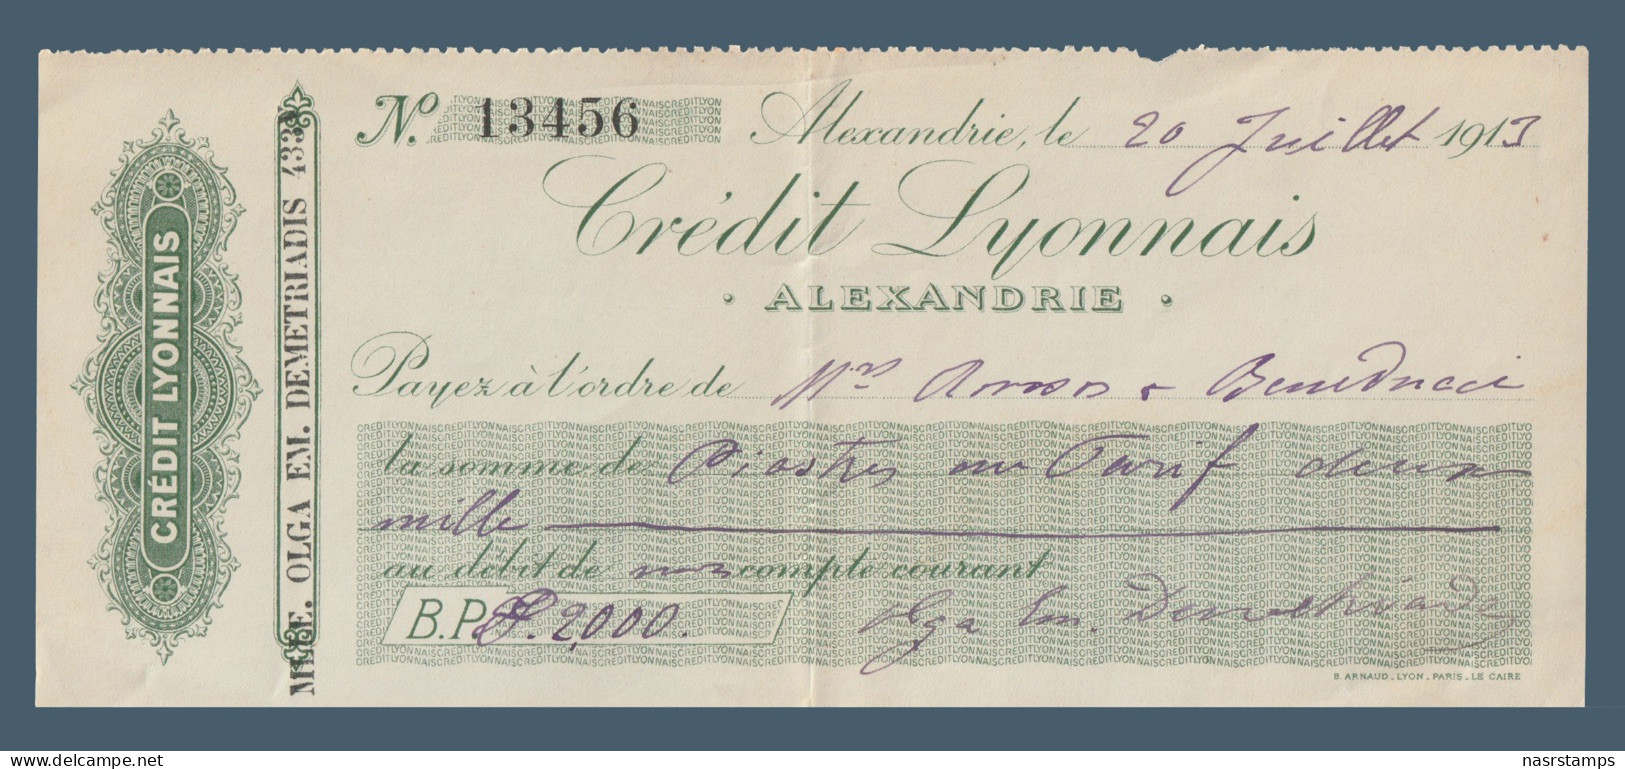 CRÉDIT LYONNAIS
MLLE. OLGA EM. DEMETRIADIS 433
No. 13456
Alexandrie, le 20 Juillet 1913
Crédit Lyonnais
· ALEXANDRIE ·
Payez à l'ordre de Mrs &
la somme de Piastres au Tarif deux
mille
au débit de mon compte courant
B.P. 2,000.
Olga Em. Demetriadis
B. ARNAUD - LYON - PARIS - LE CAIRE
delcampe.net
nasrstamps